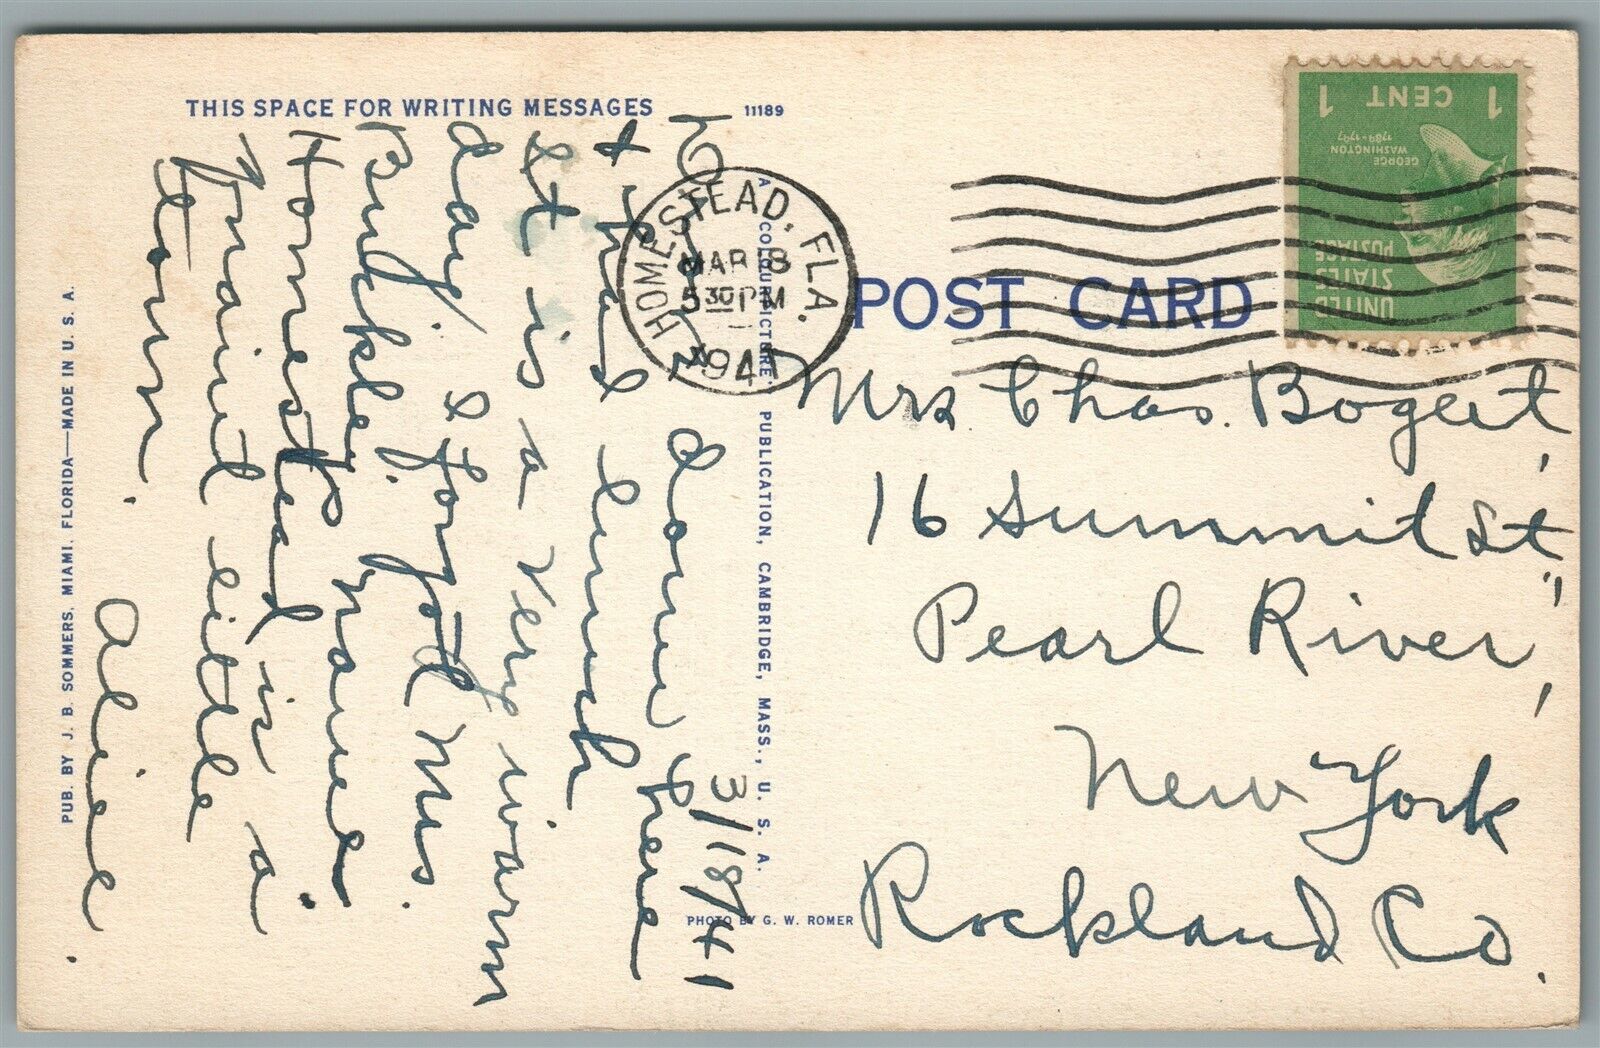 THIS SPACE FOR WRITING MESSAGES
11189
3/18/41
down here
+ had lunch
It is a very warm
day. I forgot Mrs.
Bulkley's name
Homestead is a
quaint little
town.
Alice.
PUB. BY J. B. SOMMERS, MIAMI, FLORIDA—MADE IN U. S. A.
A COLOURPICTURE PUBLICATION, CAMBRIDGE, MASS., U. S. A.
PHOTO BY G. W. ROMER
HOMESTEAD, FLA.
MAR 18
5 30 PM
1941
POST CARD
UNITED
STATES
POSTAGE
GEORGE
WASHINGTON
1789-1797
1 CENT 1
Mrs Chas. Bogert,
16 Summit St,
Pearl River,
New York
Rockland Co.